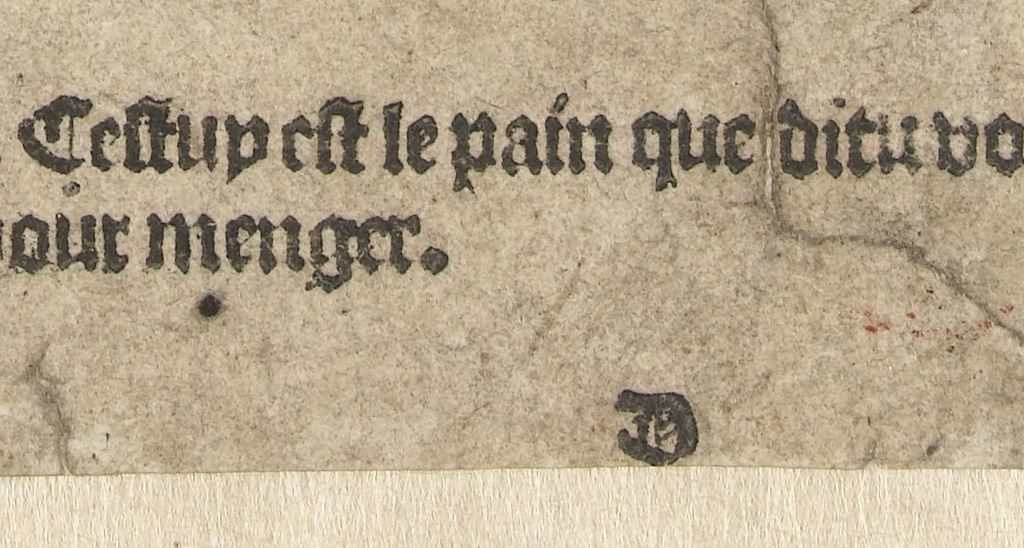 Cestuy est le pain que dieu vo
our menger.
D